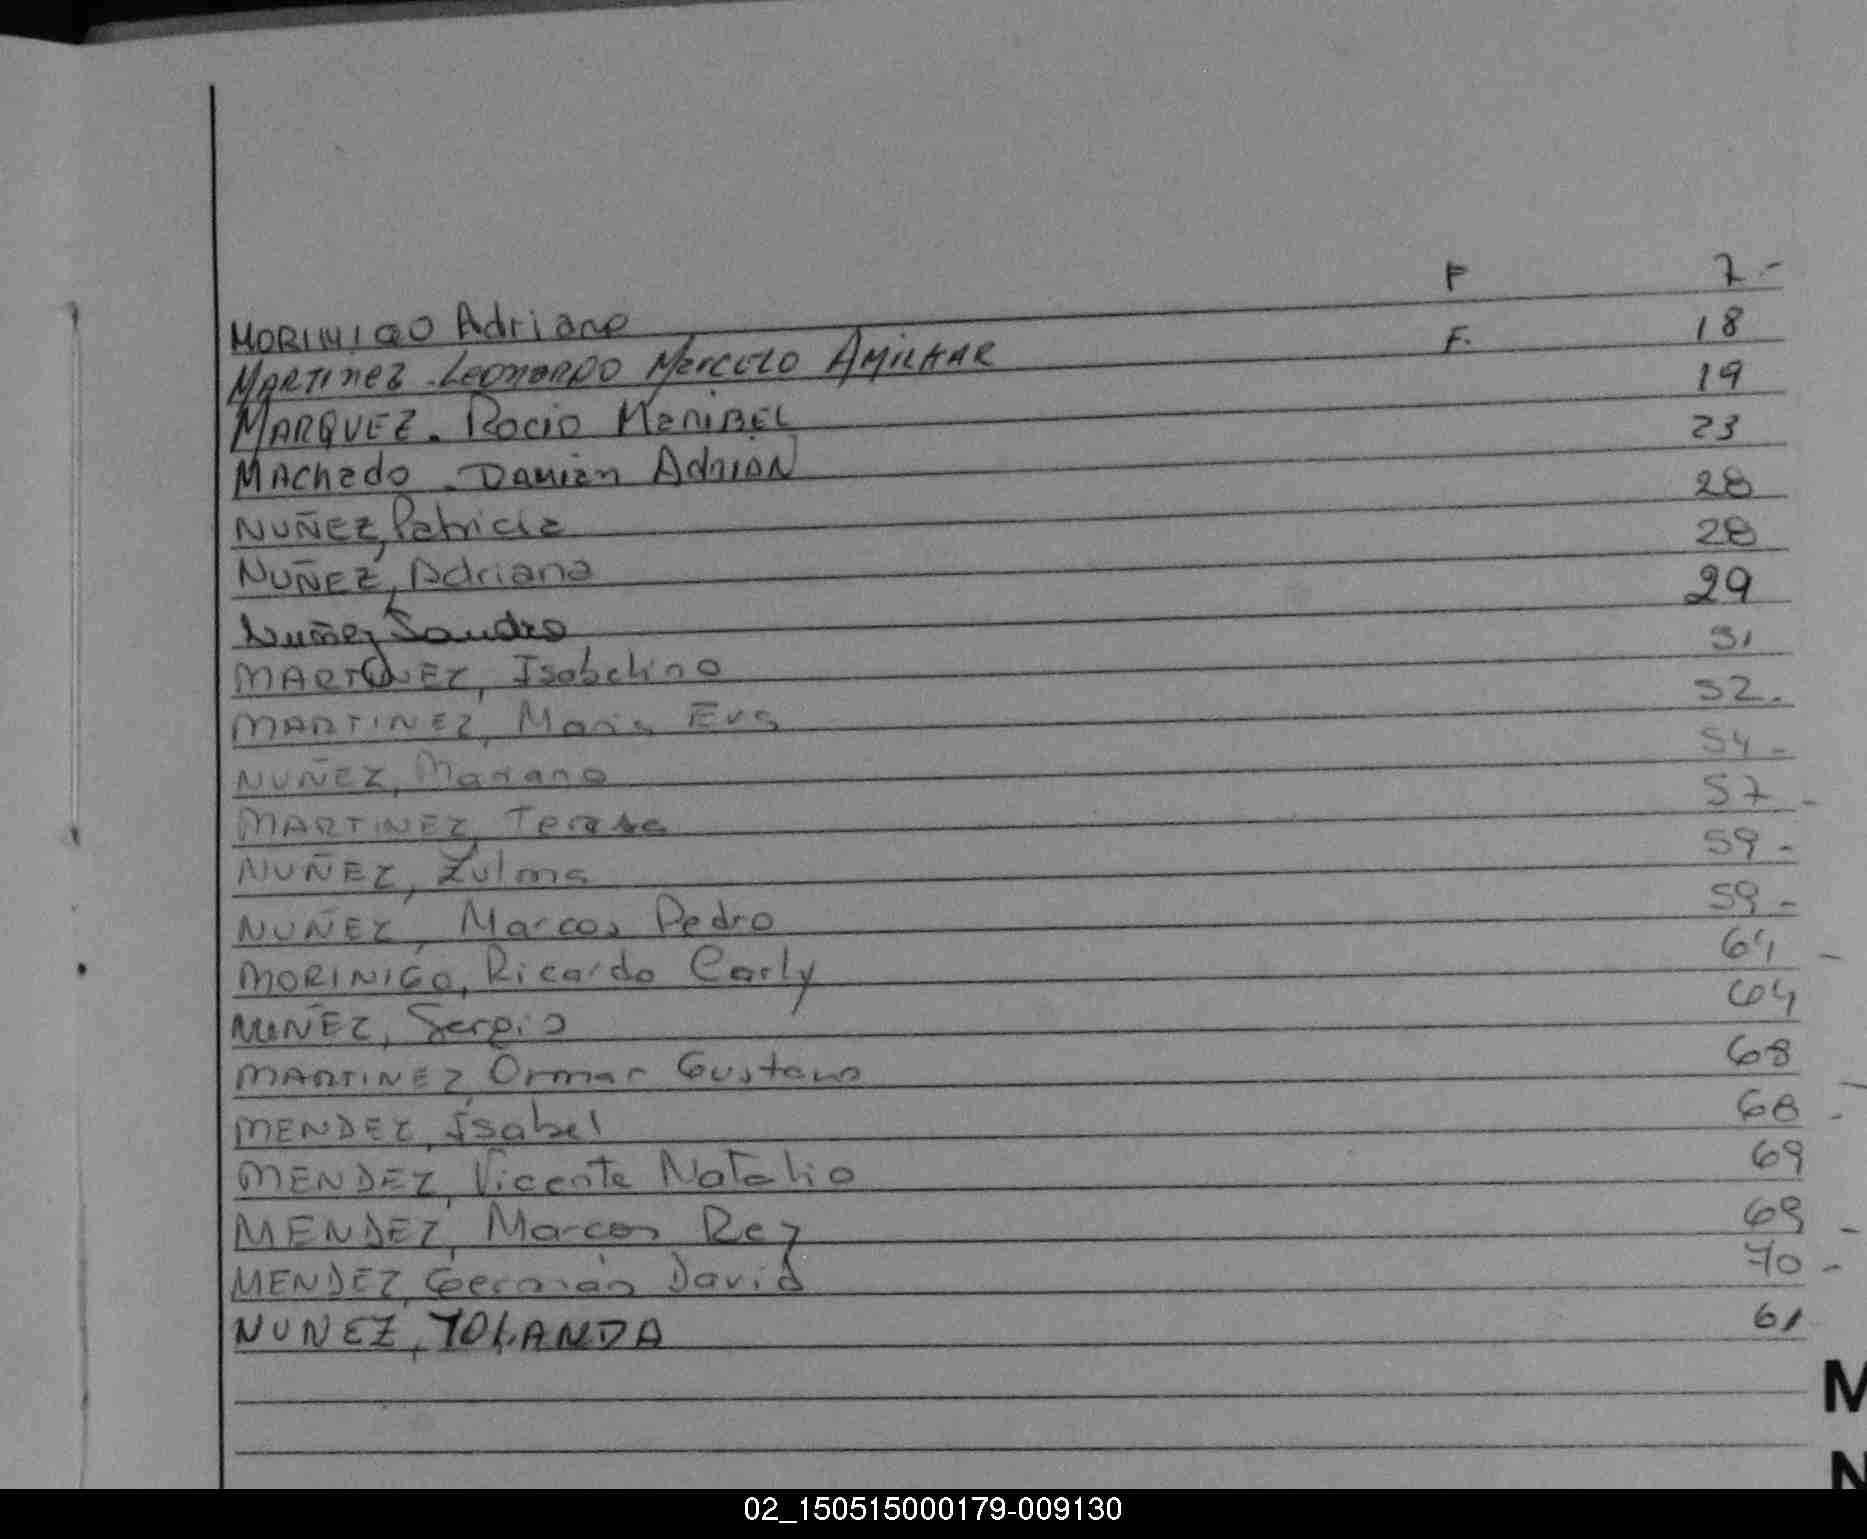 MORINIGO Adriano F 7.-
MARTINEZ - LEONARDO MARCELO AMILKAR F. 18
MARQUEZ. Rocio MariBEL 19
MAChado - Damian AdriAN 23
NUÑEZ, Patricia 28
NUÑEZ, Adriana 28
Nuñez, Sandro 29
MARTINEZ, Isabelino 51
MARTINEZ, Maria Eva 52.
NUÑEZ, Mariano 54-
MARTINEZ, Teresa 57-
NUÑEZ, Zulma 59-
NUÑEZ, Marcos Pedro 59-
MORINIGO, Ricardo Carly 64-
NUÑEZ, Sergio 64
MARTINEZ, Ormar Gustavo 68-
MENDEZ, Isabel 68-
MENDEZ, Vicente Natalio 69
MENDEZ, Marcos Rey 69-
MENDEZ, Germán David 70-
NUNEZ, YOLANDA 61
M
N
02_150515000179-009130